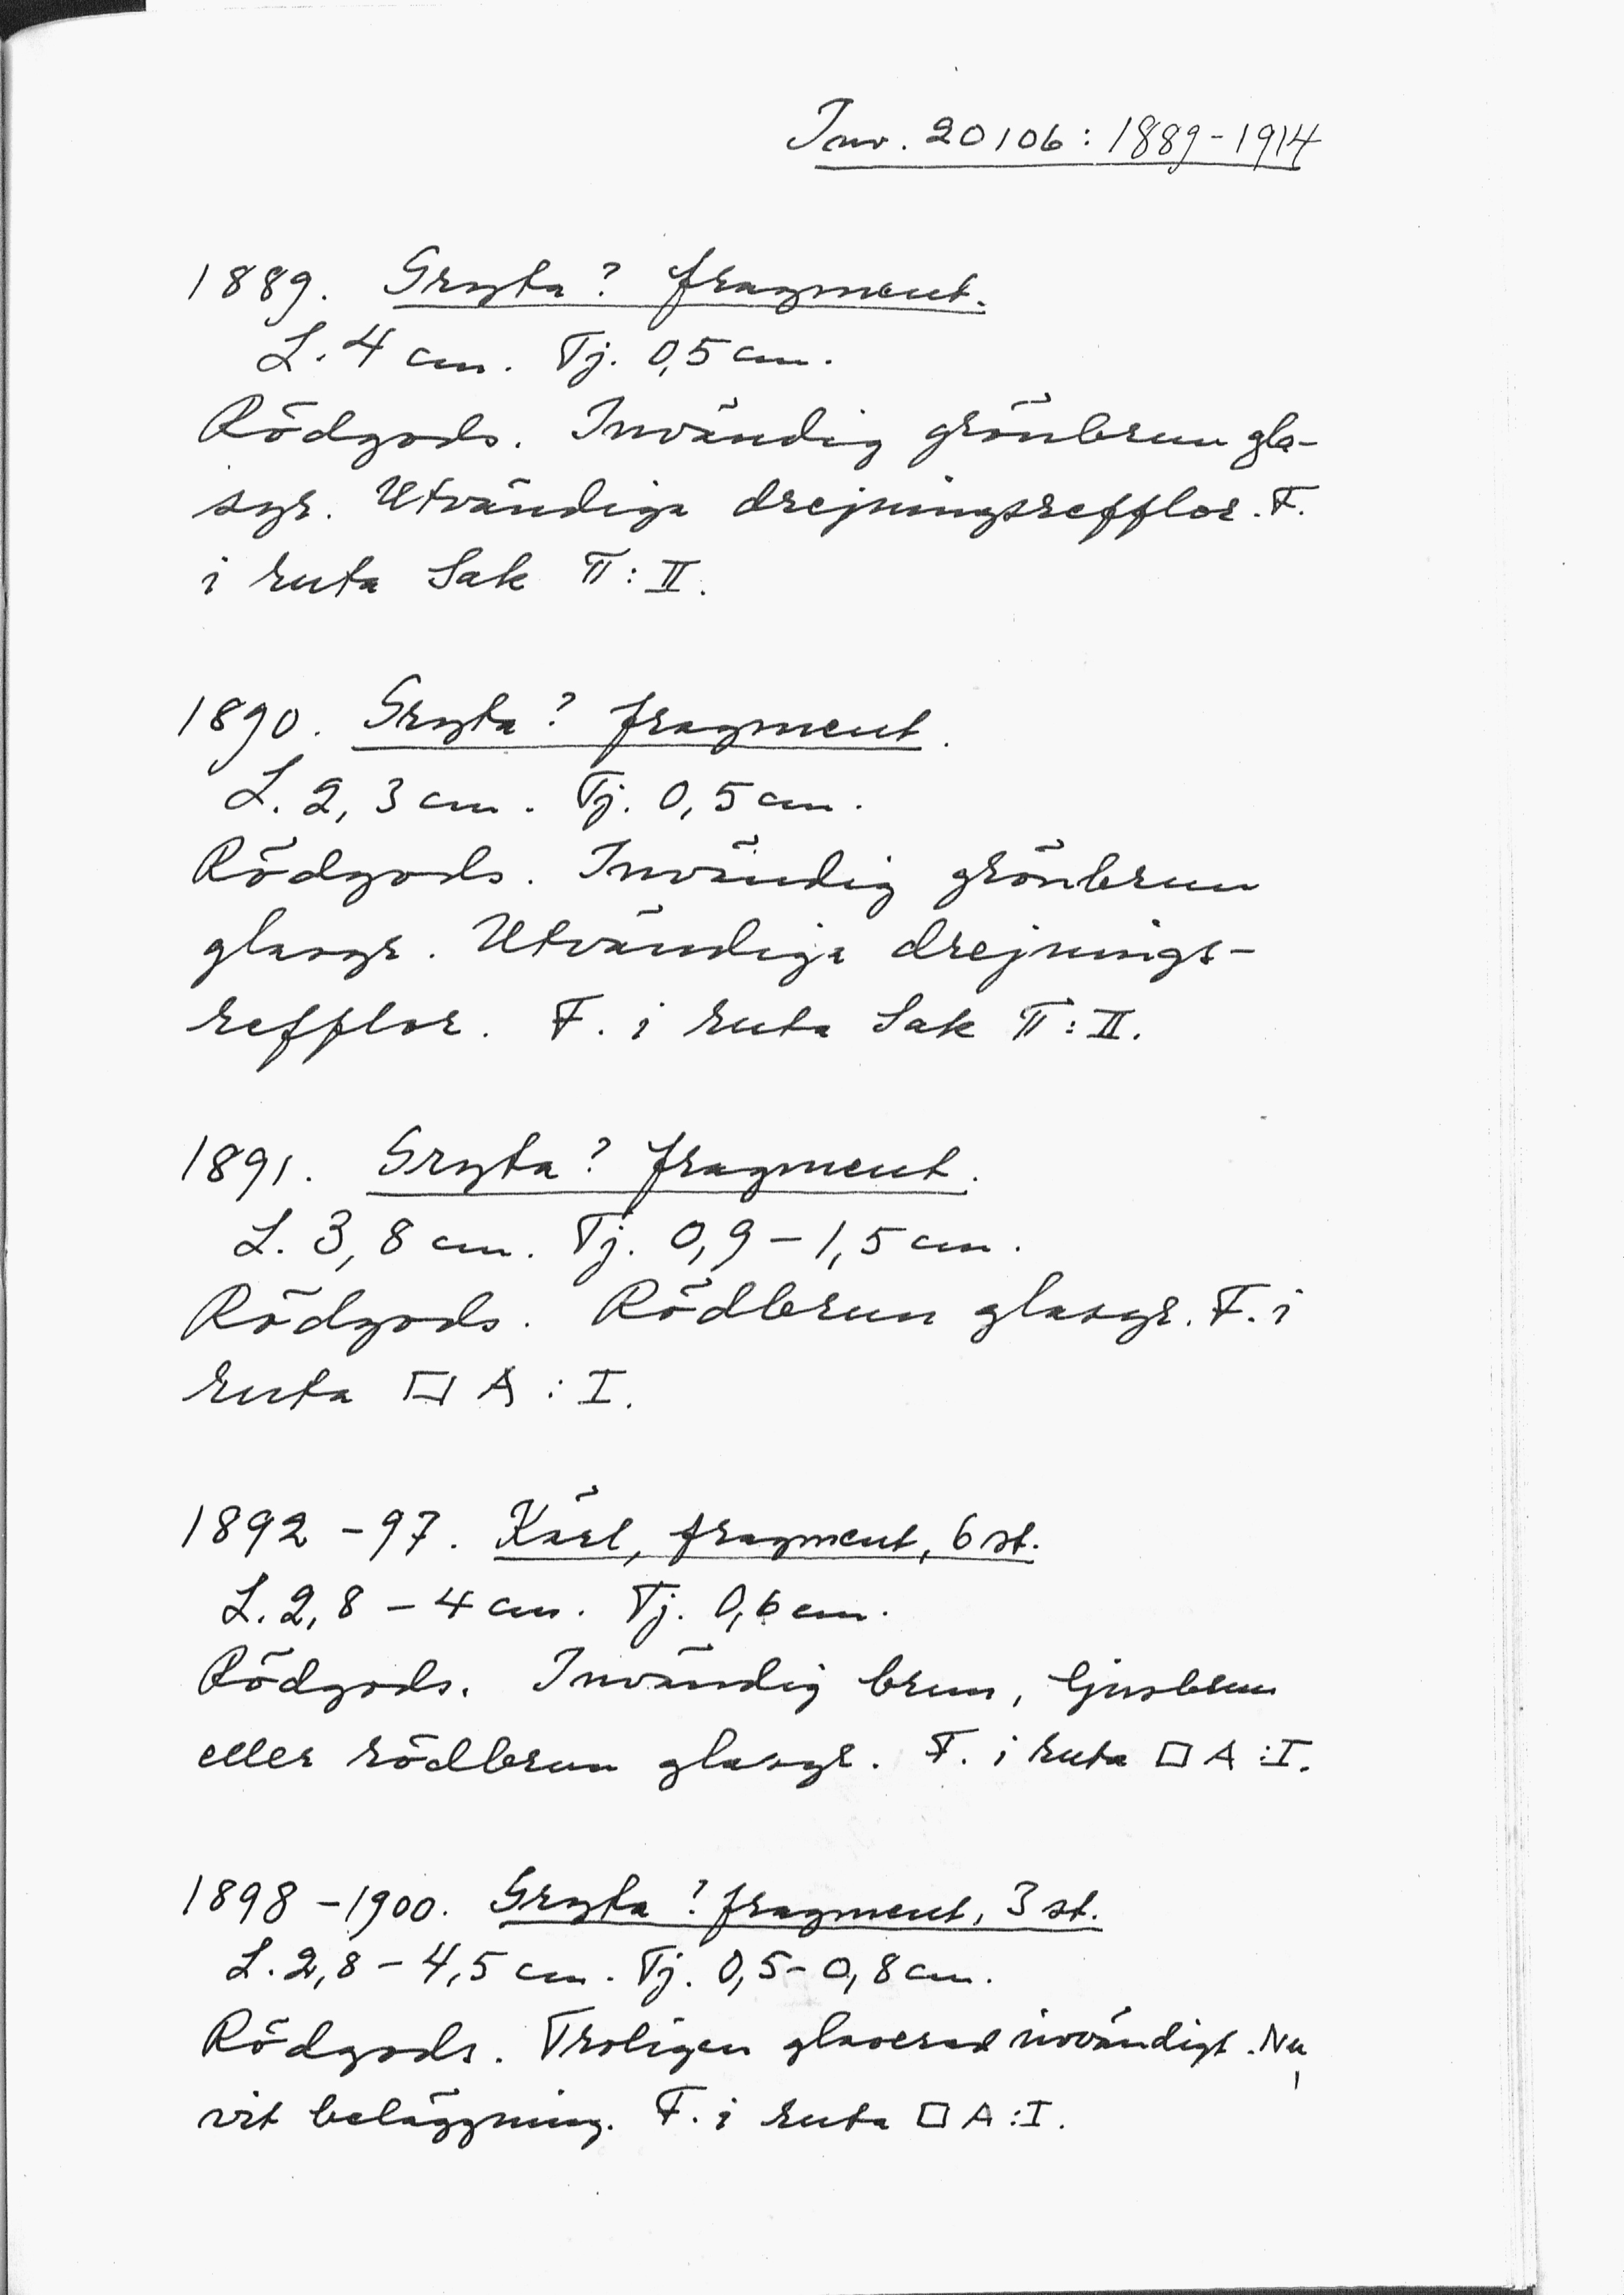 Inv. 20106: 1889-1914
1889. Gryta? fragment.
L. 4 cm. Tj. 0,5 cm.
Rödgods. Invändig grönbrun gla-
syr. Utvändiga drejningsrefflor. F.
i ruta Sak π: II.
1890. Gryta? fragment.
L. 2,3 cm. Tj. 0,5 cm.
Rödgods. Invändig grönbrun
glasyr. Utvändiga drejnings-
refflor. F. i ruta Sak π: II.
1891. Gryta? fragment.
L. 3,8 cm. Tj. 0,9-1,5 cm.
Rödgods. Rödbrun glasyr. F. i
ruta □ A: I.
1892-97. Kärl, fragment, 6 st.
L. 2,8-4 cm. Tj. 0,6 cm.
Rödgods. Invändig brun, ljusbrun
eller rödbrun glasyr. F. i ruta □ A: I.
1898-1900. Gryta? fragment, 3 st.
L. 2,8-4,5 cm. Tj. 0,5-0,8 cm.
Rödgods. Troligen glaserad invändigt. Nu
vit beläggning. F. i ruta □ A: I.